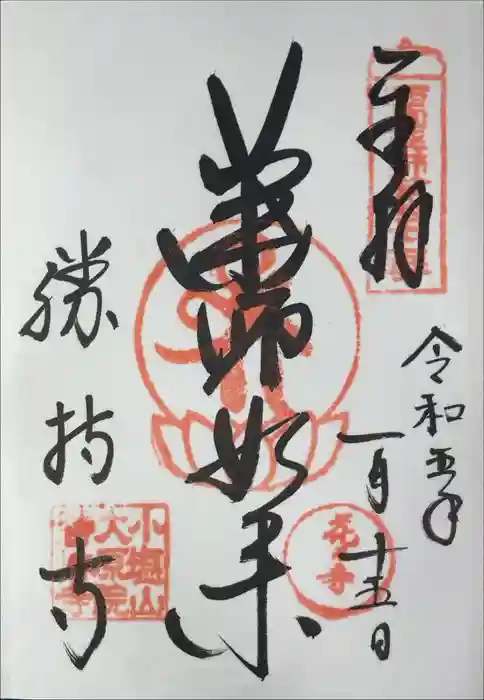 奉拝
令和五年
一月十五日
薬師如来
花の寺
勝持寺
小塩山
大原院
勝持寺